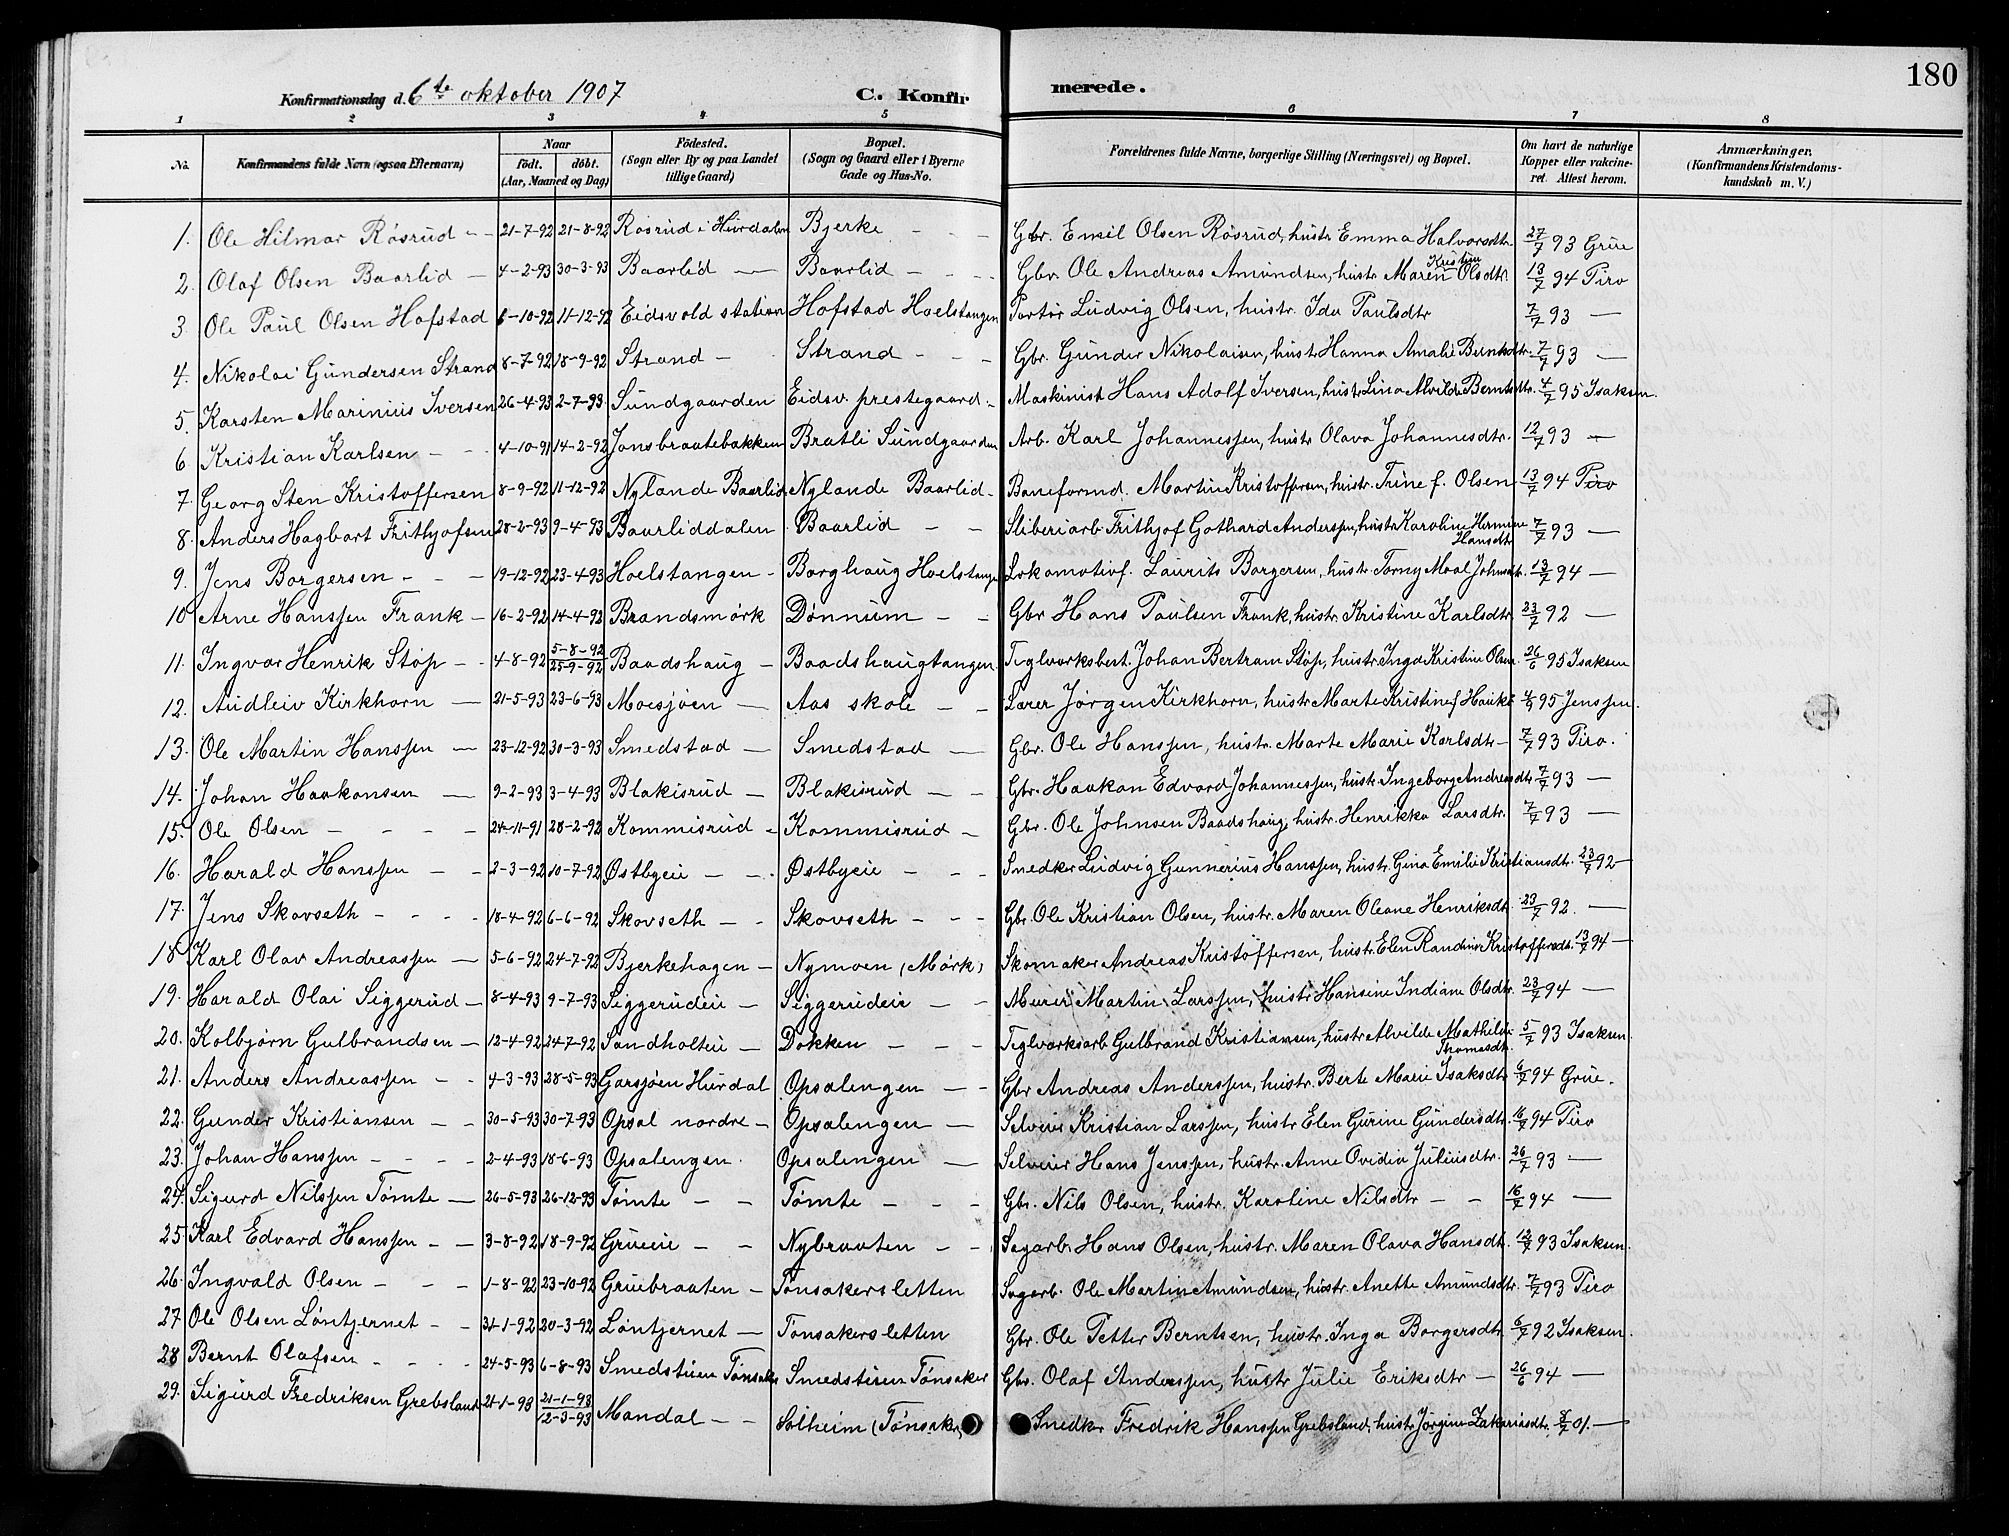 180
Konfirmationsdag d. 6te oktober 1907 C. Konfirmerede.
1 2 3 4 5 6 7 8
No. Konfirmandens fulde Navn (ogsaa Efternavn) Naar födt. döbt. (Aar, Maaned og Dag) Födested. (Sogn eller By og paa Landet tillige Gaard) Bopæl. (Sogn og Gaard eller i Byerne Gade og Hus-No. Forældrenes fulde Navne, borgerlige Stilling (Næringsvei) og Bopæl. Om havt de naturlige Kopper eller vakcineret. Attest herom. Anmærkninger. (Konfirmandens Kristendomskundskab m. V.)
1. Ole Hilmar Rösrud 21-7-92 21-8-92 Rösrud i Hurdalen Bjerke Gbr. Emil Olsen Rösrud, hustr. Emma Halvorsdtr. 27/7 93 Grue
2. Olaf Olsen Baarlid 4-2-93 30-3-93 Baarlid Baarlid Gbr. Ole Andreas Amundsen, hustr Maren Kristine Olsdtr. 13/7 94 Tiro
3. Ole Paul Olsen Hofstad 6-10-92 11-12-92 Eidsvold station Hofstad Hoelstangen Portör Ludvig Olsen, hustr. Ida Paulsdtr 7/7 93 —
4. Nikolai Gundersen Strand 8-7-92 18-9-92 Strand Strand Gbr. Gunder Nikolaisen, hustr Hanna Amalie Berntsdtr. 7/7 93 —
5. Karsten Marinius Iversen 26-4-93 2-7-93 Sundgaarden Eidsv. prestegaard Maskinist Hans Adolf Iversen, hustr Lina Alvilde Berntsdtr. 4/7 95 Isaksen.
6 Kristian Karlsen 4-10-91 14-2-92 Jonsbraatebakken Bratli Sundgaarden Arb. Karl Johannessen, hustr Olava Johannesdtr. 12/7 93 —
7 Georg Sten Kristoffersen 8-9-92 11-12-92 Nylande Baarlid Nylande Baarlid Baneformd. Martin Kristoffersen, hustr. Trine f. Olsen 13/7 94 Tiro
8. Anders Hagbart Frithjofsen 28-2-93 9-4-93 Baarliddalen Baarlid Sliberiarb. Frithjof Gothard Anderssen, hustr Karoline Hermine Hansdtr 7/7 93 —
9. Jens Borgersen 19-12-92 23-4-93 Hoelstangen Borghaug Hoelstangen Lokomotivf. Laurits Borgersen, hustr. Torny Moal Johnsdtr. 13/7 94 —
10 Arne Hanssen Frank 16-2-92 14-4-92 Brandsmörk Dönnum Gbr Hans Paulsen Frank, hustr. Kristine Karlsdtr. 23/7 92 —
11. Ingvar Henrik Stöp 4-8-92 5-8-92 25-9-92 Baadshaug Baadshaugtangen Teglværksbest. Johan Bertram Stöp, hustr Inga Kristine Olsen. 26/6 95 Isaksen
12. Audleiv Kirkhorn 21-5-93 23-6-93 Moesjöen Aas skole Lærer Jörgen Kirkhorn, hustr Marte Kristine f Haukö 95 Jenssen.
13. Ole Martin Hanssen 23-12-92 30-3-93 Smedstad Smedstad Gbr. Ole Hanssen, hustr. Marte Marie Karlsdtr 7/7 93 Tiro.
14. Johan Haakonsen 9-2-93 3-4-93 Blakisrud Blakisrud Gbr. Haakon Edvard Johannessen, hustr Ingeborg Andreasdtr 7/7 93 —
15. Ole Olsen 24-11-91 28-2-92 Kommisrud Kommisrud Gbr. Ole Johnsen Baadshaug, hustr. Henrikka Larsdtr. 7/7 93 —
16. Harald Hanssen 2-3-92 10-7-92 Östbyeie Östbyeie Snedker Ludvig Gunnerius Hanssen, hustr. Gina Emilie Kristiansdtr. 23/7 92 —
17. Jens Skovseth 18-4-92 6-6-92 Skovseth Skovseth Gbr. Ole Kristian Olsen, hustr. Maren Oleane Henriksdtr. 23/7 92. —
18 Karl Olav Andreassen 5-6-92 24-7-92 Bjerkehagen Nymoen (Mörk) Skomaker Andreas Kristoffersen, hustr. Elen Randine Kristoffersdtr. 13/7 94 —
19. Harald Olai Siggerud 8-4-93 9-7-93 Siggerudeie Siggerudeie Murer Martin Larssen, hustr Hansine Indiane Olsdtr. 23/7 94 —
20. Kolbjörn Gulbrandsen 12-4-92 24-7-92 Sandholteie Dokken Teglværksarb Gulbrand Kristiansen, hustr Alvilde Mathilde Thomasdtr. 5/7 93 Isaksen.
21. Anders Andreassen 4-3-93 28-5-93 Garsjöen Hurdal Opsalengen Gbr Andreas Anderssen, hustr. Berte Marie Isaksdtr 6/7 94 Grue.
22. Gunder Kristiansen 30-5-93 30-7-93 Opsal nordre Opsalengen Selveier Kristian Larssen, hustr Elen Gurine Gundersdtr. 16/7 94 Tiro
23. Johan Hanssen 2-4-93 18-6-93 Opsalengen Opsalengen Selveier Hans Jenssen, hustr. Anne Ovidia Juliusdtr. 26/7 93 —
24. Sigurd Nilssen Tömte 26-5-93 26-12-93 Tömte Tömte Gbr. Nils Olsen, hustr. Karoline Nilsdtr 16/7 94 —
25. Karl Edvard Hanssen 3-8-92 18-9-92 Grueeie Nybraaten Sagarb. Hans Olsen, hustr. Maren Olava Hansdtr. 12/7 93 Isaksen.
26. Ingvald Olsen 1-8-92 23-10-92 Gruebraaten Tönsakersletten Sagarb. Ole Martin Amundsen, hustr. Anette Amundsdtr. 7/7 93 Tiro
27 Ole Olsen Löntjernet 31-1-92 20-3-92 Löntjernet Tönsakersletten Gbr. Ole Petter Berntsen, hustr. Inga Borgersdtr. 6/7 92 Isaksen.
28 Bernt Olafsen 24-5-93 6-8-93 Smedstuen Tönsaker Smedstuen Tönsaker Gbr. Olaf Anderssen, hustr Julie Eriksdtr 26/6 94 —
29. Sigurd Fredriksen Grebsland 21-1-93 21-1-93 12-3-93 Mandal Solheim (Tönsaker) Snedker Fredrik Hanssen Grebsland, hustr Jörgine Zakariasdtr. 01. —